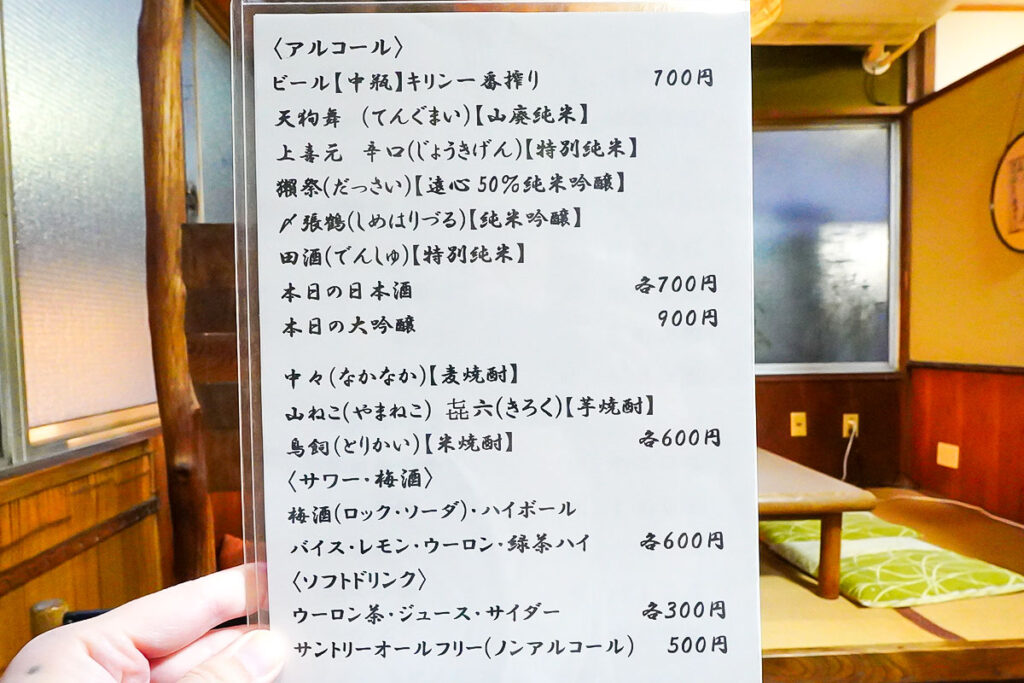 〈アルコール〉
ビール【中瓶】キリン一番搾り 700円
天狗舞 (てんぐまい)【山廃純米】
上喜元 辛口(じょうきげん)【特別純米】
獺祭(だっさい)【遠心50%純米吟醸】
〆張鶴(しめはりづる)【純米吟醸】
田酒(でんしゅ)【特別純米】
本日の日本酒 各700円
本日の大吟醸 900円
中々(なかなか)【麦焼酎】
山ねこ(やまねこ) 㐂六(きろく)【芋焼酎】
鳥飼(とりかい)【米焼酎】 各600円
〈サワー・梅酒〉
梅酒(ロック・ソーダ)・ハイボール
バイス・レモン・ウーロン・緑茶ハイ 各600円
〈ソフトドリンク〉
ウーロン茶・ジュース・サイダー 各300円
サントリーオールフリー(ノンアルコール) 500円